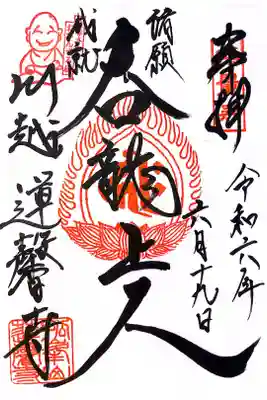 奉拝
令和六年
六月十九日
諸願
成就
呑龍上人
川越
蓮馨寺